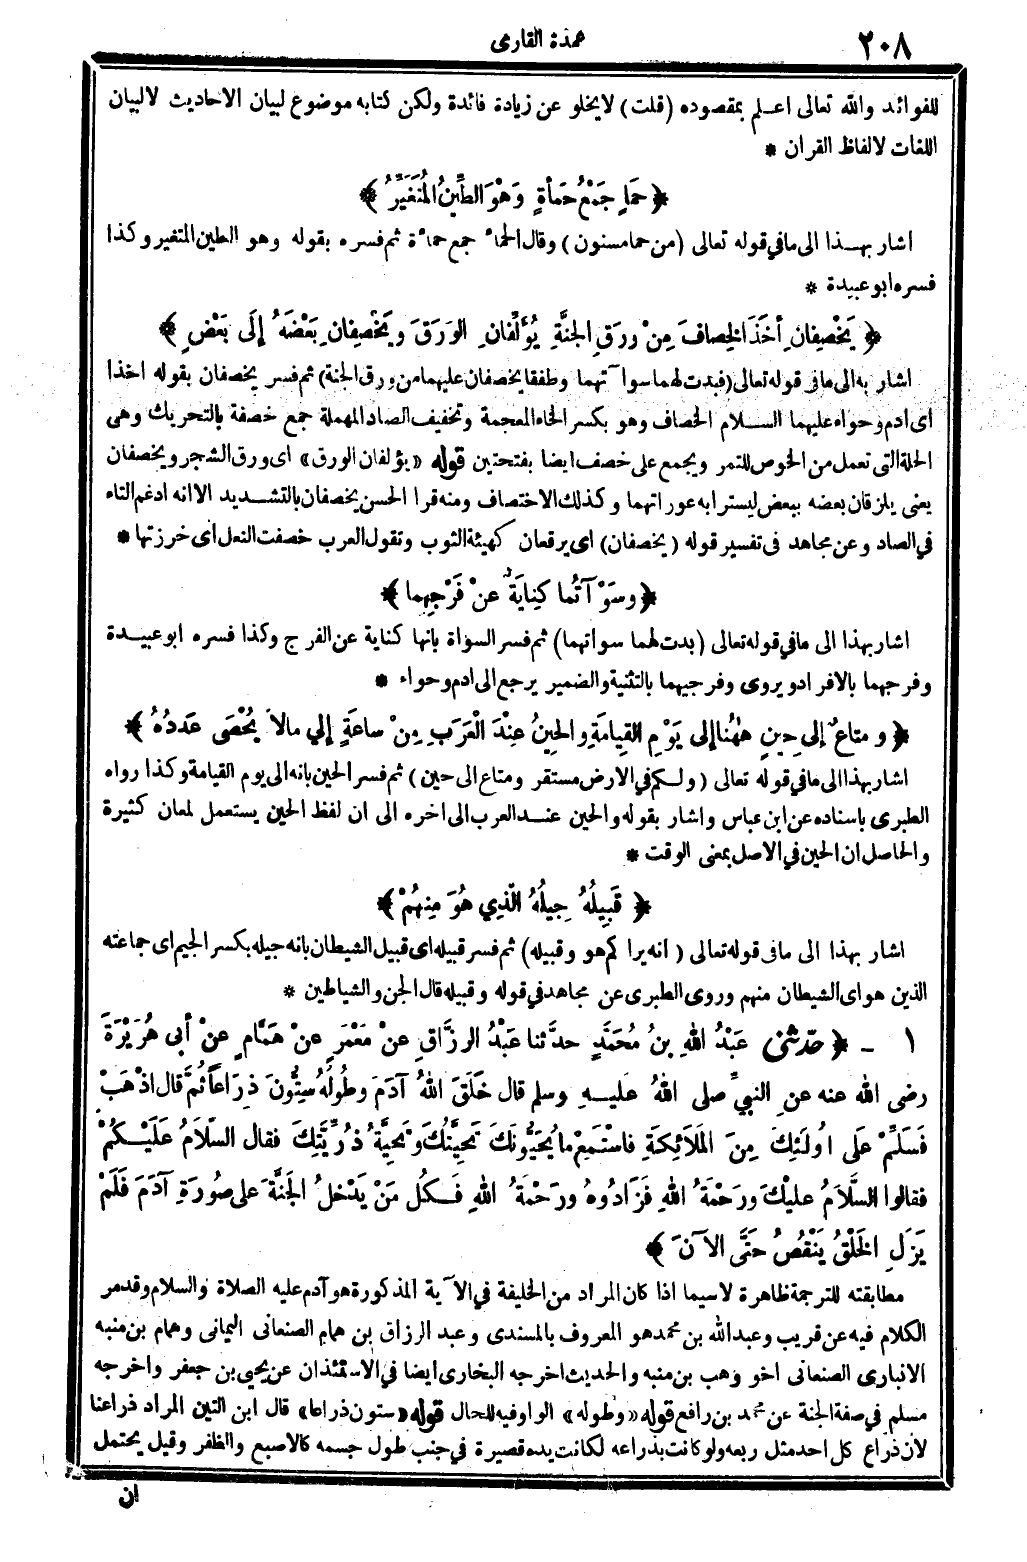 ٢٠٨
عمدة القارى
للفوائد والله تعالى اعلم بمقصوده (قلت) لا يخلو عن زيادة فائدة ولكن كتابه موضوع لبيان الاحاديث لا لبيان
اللغات لالفاظ القران *
﴿ حَمَإٍ جَمْعُ حَمْأَةٍ وَهْوَ الطِّينُ المُتَغَيِّرُ ﴾
اشار بهذا الى مافي قوله تعالى (من حما مسنون) وقال الحمأ جمع حمأة ثم فسره بقوله وهو الطين المتغير وكذا
فسره ابو عبيدة *
﴿ يَخْصِفانِ أخَذَ الخِصافَ مِنْ ورَقِ الجنَّةِ يُؤَلِّفانِ الورَقَ ويَخْصِفانِ بَعْضَهُ إلَى بَعْضٍ ﴾
اشار به الى مافى قوله تعالى (فبدت لهما سوآتهما وطفقا يخصفان عليهما من ورق الجنة) ثم فسر يخصفان بقوله اخذا
اى ادم وحواء عليهما السلام الخصاف وهو بكسر الخاء المعجمة وتخفيف الصاد المهملة جمع خصفة بالتحريك وهى
الحلة التى تعمل من الخوص للتمر ويجمع على خصف ايضا بفتحتين قوله «يؤلفان الورق» اى ورق الشجر ويخصفان
يعنى يلزقان بعضه ببعض ليسترا به عوراتهما وكذلك الاختصاف ومنه قرا الحسن يخصفان بالتشديد الا انه ادغم التاء
في الصاد وعن مجاهد فى تفسير قوله (يخصفان) اى يرقعان كهيئة الثوب وتقول العرب خصفت النعل اى خرزتها *
﴿ وسَوْآتُما كِنايَةٌ عنْ فَرْجِهِما ﴾
اشار بهذا الى مافي قوله تعالى (بدت لهما سواتهما) ثم فسر السواة بانها كناية عن الفرج وكذا فسره ابو عبيدة
وفرجهما بالافراد ويروى وفرجيهما بالتثنية والضمير يرجع الى ادم وحواء *
﴿ ومتاعٌ إلَى حِينٍ هٰهُنا إلى يَوْمِ القِيامَةِ والحِينُ عِنْدَ الْعَرَبِ مِنْ ساعَةٍ إلي مالاَ يُحْصَى عَدَدُهُ ﴾
اشار بهذا الى مافي قوله تعالى (ولكم في الارض مستقر ومتاع الى حين) ثم فسر الحين بانه الى يوم القيامة وكذا رواه
الطبرى باسناده عن ابن عباس واشار بقوله والحين عند العرب الى اخره الى ان لفظ الحين يستعمل لمعان كثيرة
والحاصل ان الحين في الاصل بمعنى الوقت *
﴿ قَبِيلُهُ جِيلُهُ الَّذِي هُوَ مِنهُمْ ﴾
اشار بهذا الى مافى قوله تعالى (انه يراكم هو وقبيله) ثم فسر قبيله اى قبيل الشيطان بانه جيله بكسر الجيم اى جماعته
الذين هو اى الشيطان منهم وروى الطبرى عن مجاهد في قوله وقبيله قال الجن والشياطين *
١ ـ ﴿ حدّثنى عَبْدُ اللهِ بنُ مُحَمَّدٍ حدَّثنا عَبْدُ الرزَّاقِ عنْ مَعْمَرٍ عنْ هَمَّامٍ عنْ أبى هُرَيْرَةَ
رضى الله عنه عنِ النبيِّ صلى اللهُ عليهِ وسلم قال خَلَقَ اللهُ آدَمَ وطُولُهُ سِتُّونَ ذِرَاعاً ثُمَّ قال اذْهَبْ
فَسَلِّمْ عَلَى اُولَئِكَ مِنَ المَلاَئِكَةِ فاسْتَمِعْ ما يُحَيُّونَكَ تَحِيَّتُكَ وتحِيَّةُ ذُرِّيَّتِكَ فقال السَّلاَمُ عَلَيْكُمْ
فقالوا السَّلاَمُ عليْكَ ورَحْمَةُ اللهِ فَزَادُوهُ ورَحْمَةُ اللهِ فَكُلُّ مَنْ يَدْخلُ الجَنَّةَ عَلى صُورَةِ آدَمَ فَلَمْ
يَزَلِ الخَلْقُ يَنْقُصُ حَتَّى الآنَ ﴾
مطابقته للترجمة ظاهرة لاسيما اذا كان المراد من الخليفة في الآية المذكورة هو آدم عليه الصلاة والسلام وقد مر
الكلام فيه عن قريب وعبد الله بن محمد هو المعروف بالمسندى وعبد الرزاق بن همام الصنعانى اليمانى وهمام بن منبه
الانبارى الصنعانى اخو وهب بن منبه والحديث اخرجه البخارى ايضا في الاستئذان عن يحيى بن جعفر واخرجه
مسلم في صفة الجنة عن محمد بن رافع قوله «وطوله» الواو فيه للحال قوله «ستون ذراعا» قال ابن التين المراد ذراعنا
لان ذراع كل احد مثل ربعه ولو كانت بذراعه لكانت يده قصيرة في جنب طول جسمه كالاصبع والظفر وقيل يحتمل
ان